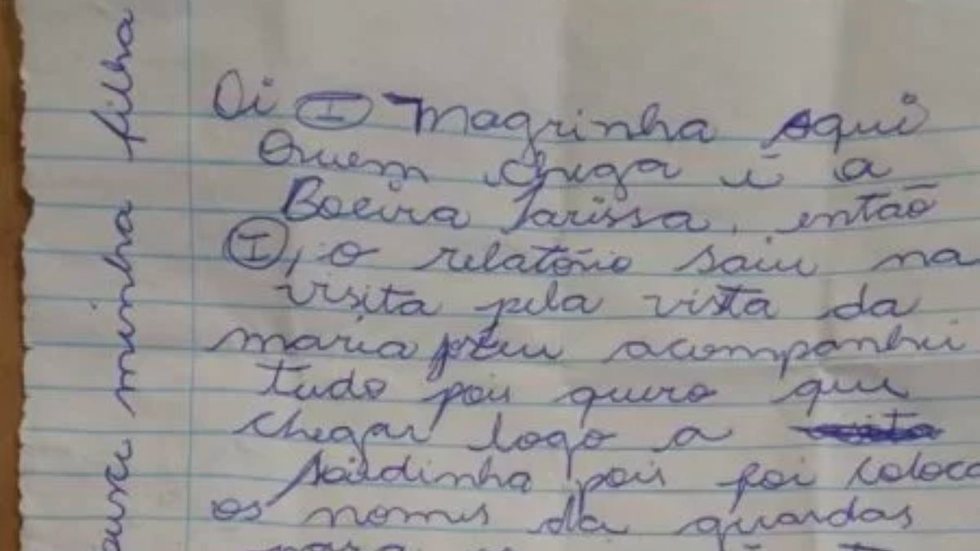 Oi I Magrinha Aqui
Quem chega é a
Boeira Larissa, então
I, o relatório saiu na
visita pela vista da
maria eu acompanhei
tudo pois quero que
chegar logo a
saidinha pois foi coloc
os nomes da guardas
minha filha